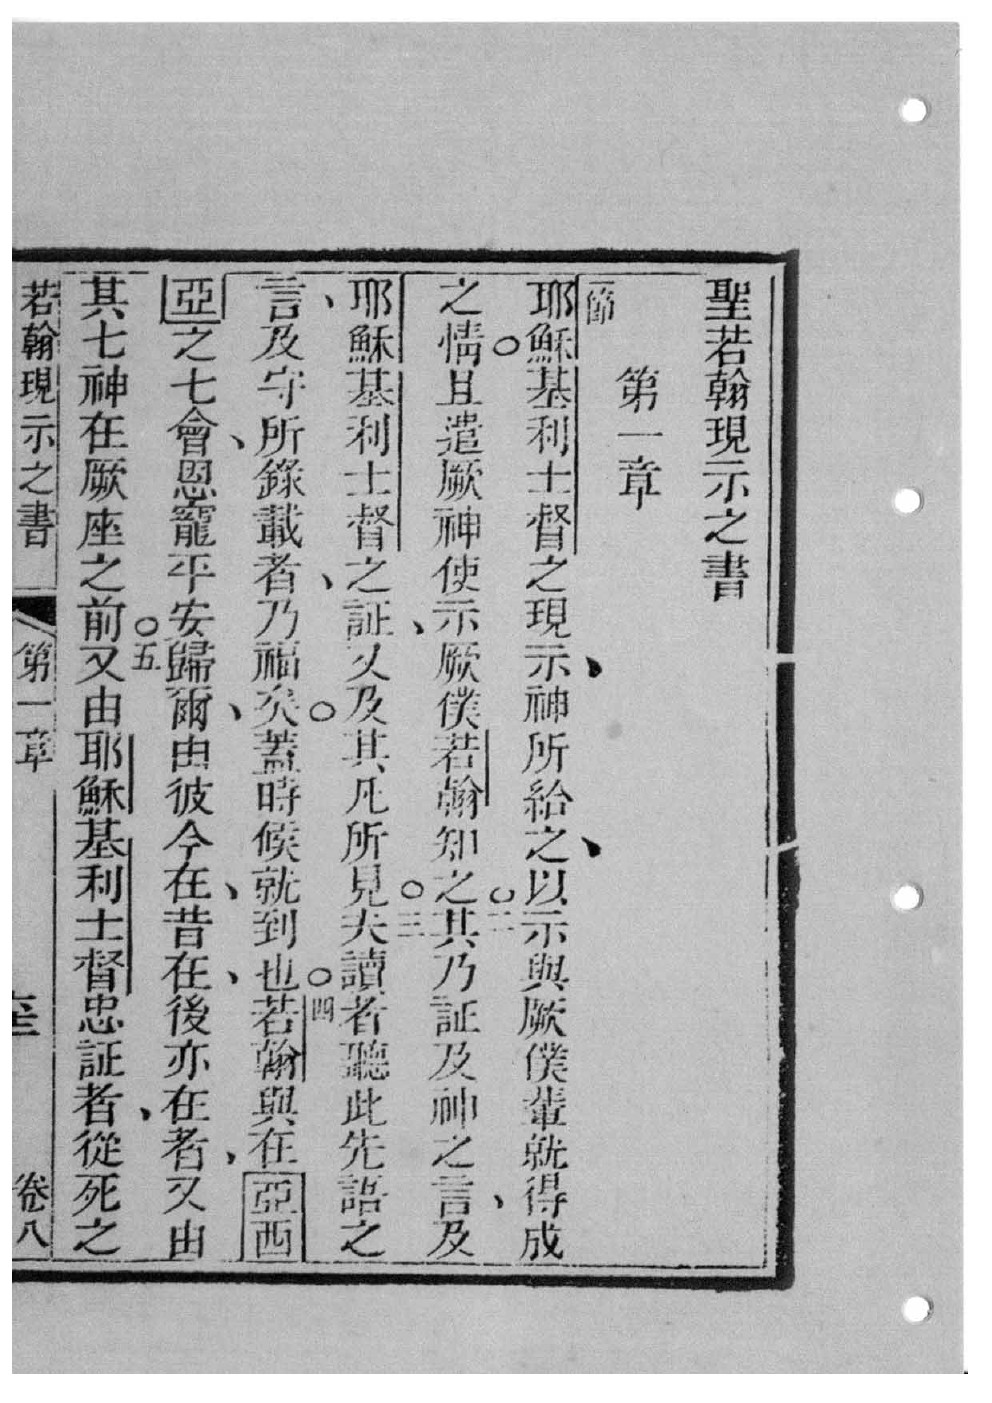 聖若翰現示之書
第一章
一節耶穌基利士督之現示、神所給之、以示與厥僕輩就得成
之情。且遣厥神使示厥僕若翰知之。二其乃証及神之言、及
耶穌基利士督之証、又及其凡所見。三夫讀者聽此先語之
言、及守所錄載者、乃福矣。蓋時候就到也。四若翰與在亞西
亞之七會、恩寵平安歸爾、由彼今在、昔在、後亦在者、又由
其七神在厥座之前。五又由耶穌基利士督忠証者、從死之
若翰現示之書 第一章 卷八